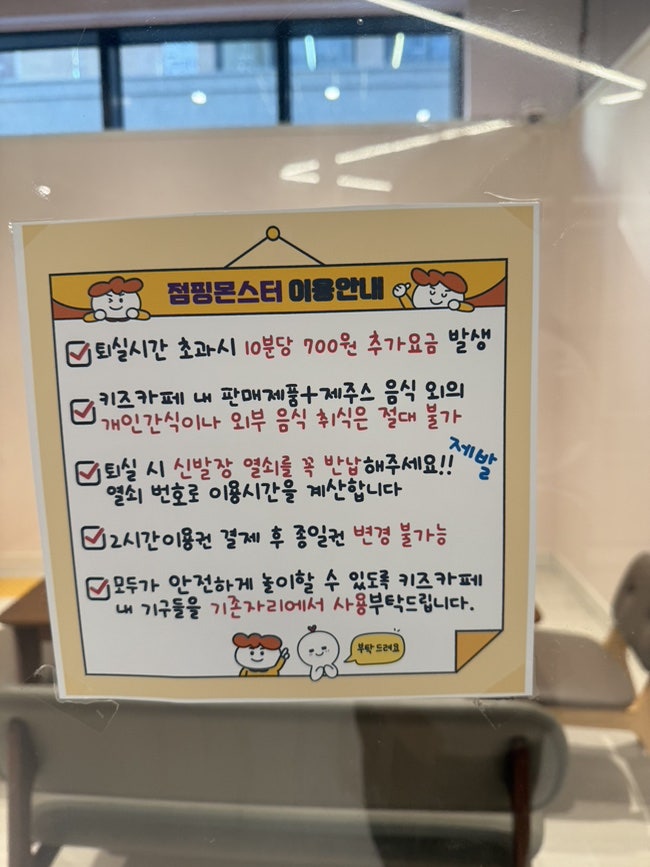 점핑몬스터 이용안내
퇴실시간 초과시 10분당 700원 추가요금 발생
키즈카페 내 판매제품+제주스 음식 외의
개인간식이나 외부 음식 취식은 절대 불가
제발
퇴실 시 신발장 열쇠를 꼭 반납해주세요!!
열쇠 번호로 이용시간을 계산합니다
2시간이용권 결제 후 종일권 변경 불가능
모두가 안전하게 놀이할 수 있도록 키즈카페
내 기구들을 기존자리에서 사용부탁드립니다.
부탁드려요